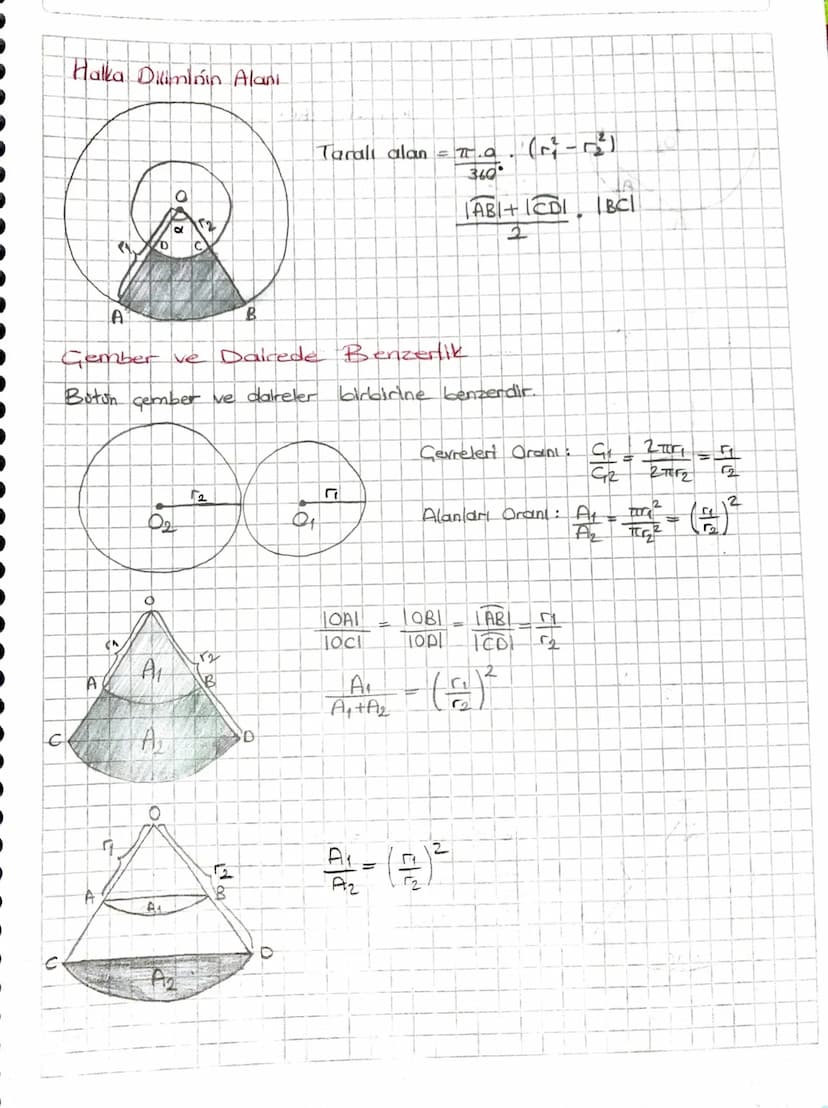 Halka Diliminin Alanı
Taralı alan = π.a/360° . (r₁² - r₂²)
(|AB|+|CD|)/2 . |BC|
O
α
r₁
r₂
D
C
A
B
Çember ve Dairede Benzerlik
Bütün çember ve daireler birbirine benzerdir.
r₂
O₂
r₁
O₁
Çevreleri Oranı: Ç₁/Ç₂ = 2πr₁/2πr₂ = r₁/r₂
Alanları Oranı: A₁/A₂ = πr₁²/πr₂² = (r₁/r₂)²
O
r₁
r₂
A₁
A
B
C
A₂
D
|OA|/|OC| = |OB|/|OD| = |AB|/|CD| = r₁/r₂
A₁/(A₁+A₂) = (r₁/r₂)²
O
r₁
r₂
A
B
A₁
C
D
A₂
A₁/A₂ = (r₁/r₂)²